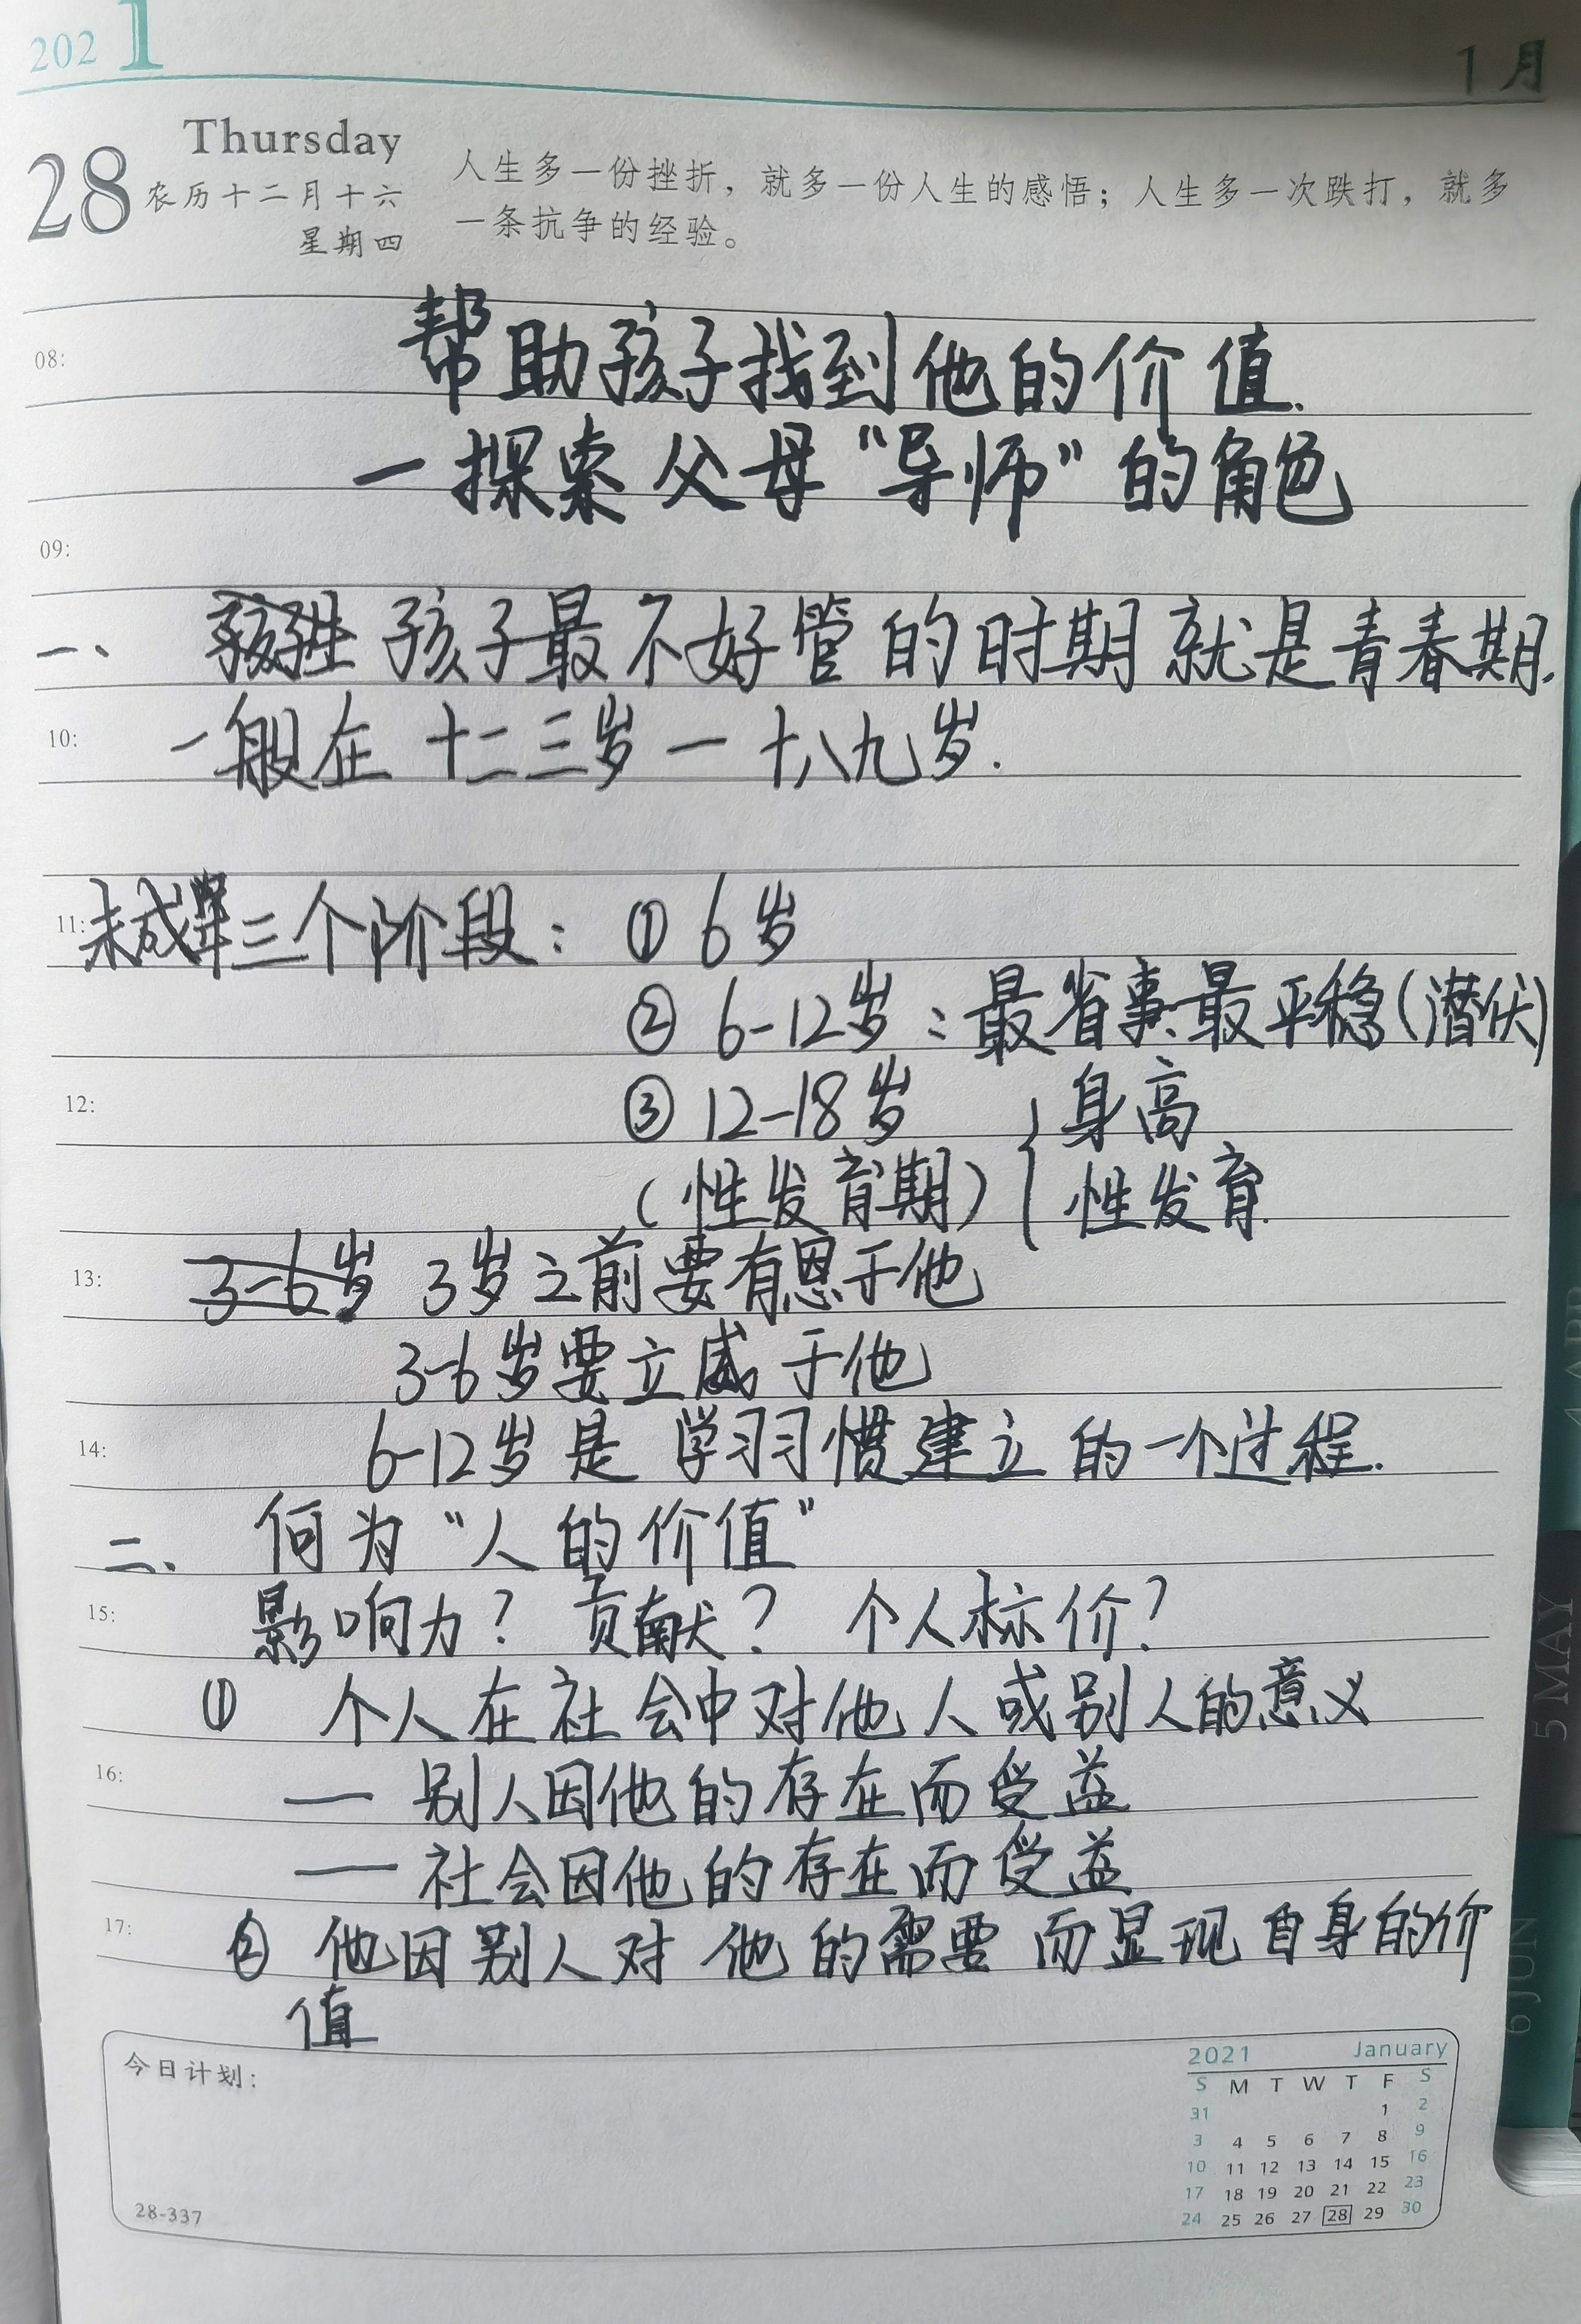 2021
1月
28 Thursday
农历十二月十六
星期四
人生多一份挫折，就多一份人生的感悟；人生多一次跌打，就多
一条抗争的经验。
帮助孩子找到他的价值.
一探索父母“导师”的角色
08:
09:
一、孩子最不好管的时期就是青春期.
10: 一般在 十二三岁一十八九岁.
11: 未成年三个阶段：① 6岁
② 6-12岁：最省事、最平稳(潜伏)
12: ③ 12-18岁 { 身高
(性发育期) 性发育.
13: 3-6岁 3岁之前要有恩于他
3-6岁要立威于他
14: 6-12岁是 学习习惯建立的一个过程.
二、何为“人的价值”
15: 影响力？贡献？ 个人标价？
① 个人在社会中对他人或别人的意义
16: — 别人因他的存在而受益
— 社会因他的存在而受益
17: ② 他因别人对他的需要而显现自身的价
值
今日计划：
28-337
2021 January
S M T W T F S
31 1 2
3 4 5 6 7 8 9
10 11 12 13 14 15 16
17 18 19 20 21 22 23
24 25 26 27 28 29 30
4 APR
5 MAY
6 JUN